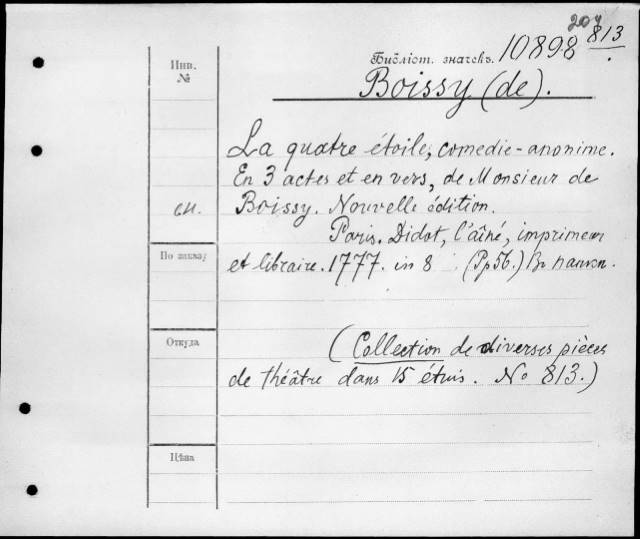 207
Библіот. значекъ. 10898 813
Boissy (de).
Инв.
№
La quatre étoile, comedie-anonime.
En 3 actes et en vers, de Monsieur de
см. Boissy. Nouvelle édition.
Paris. Didot, l'aîné, imprimeur
По заказу
et libraire. 1777. in 8 (Pp 56.)
Откуда
(Collection de diverses pièces
de théâtre dans 15 étuis. No 813.)
Цѣна